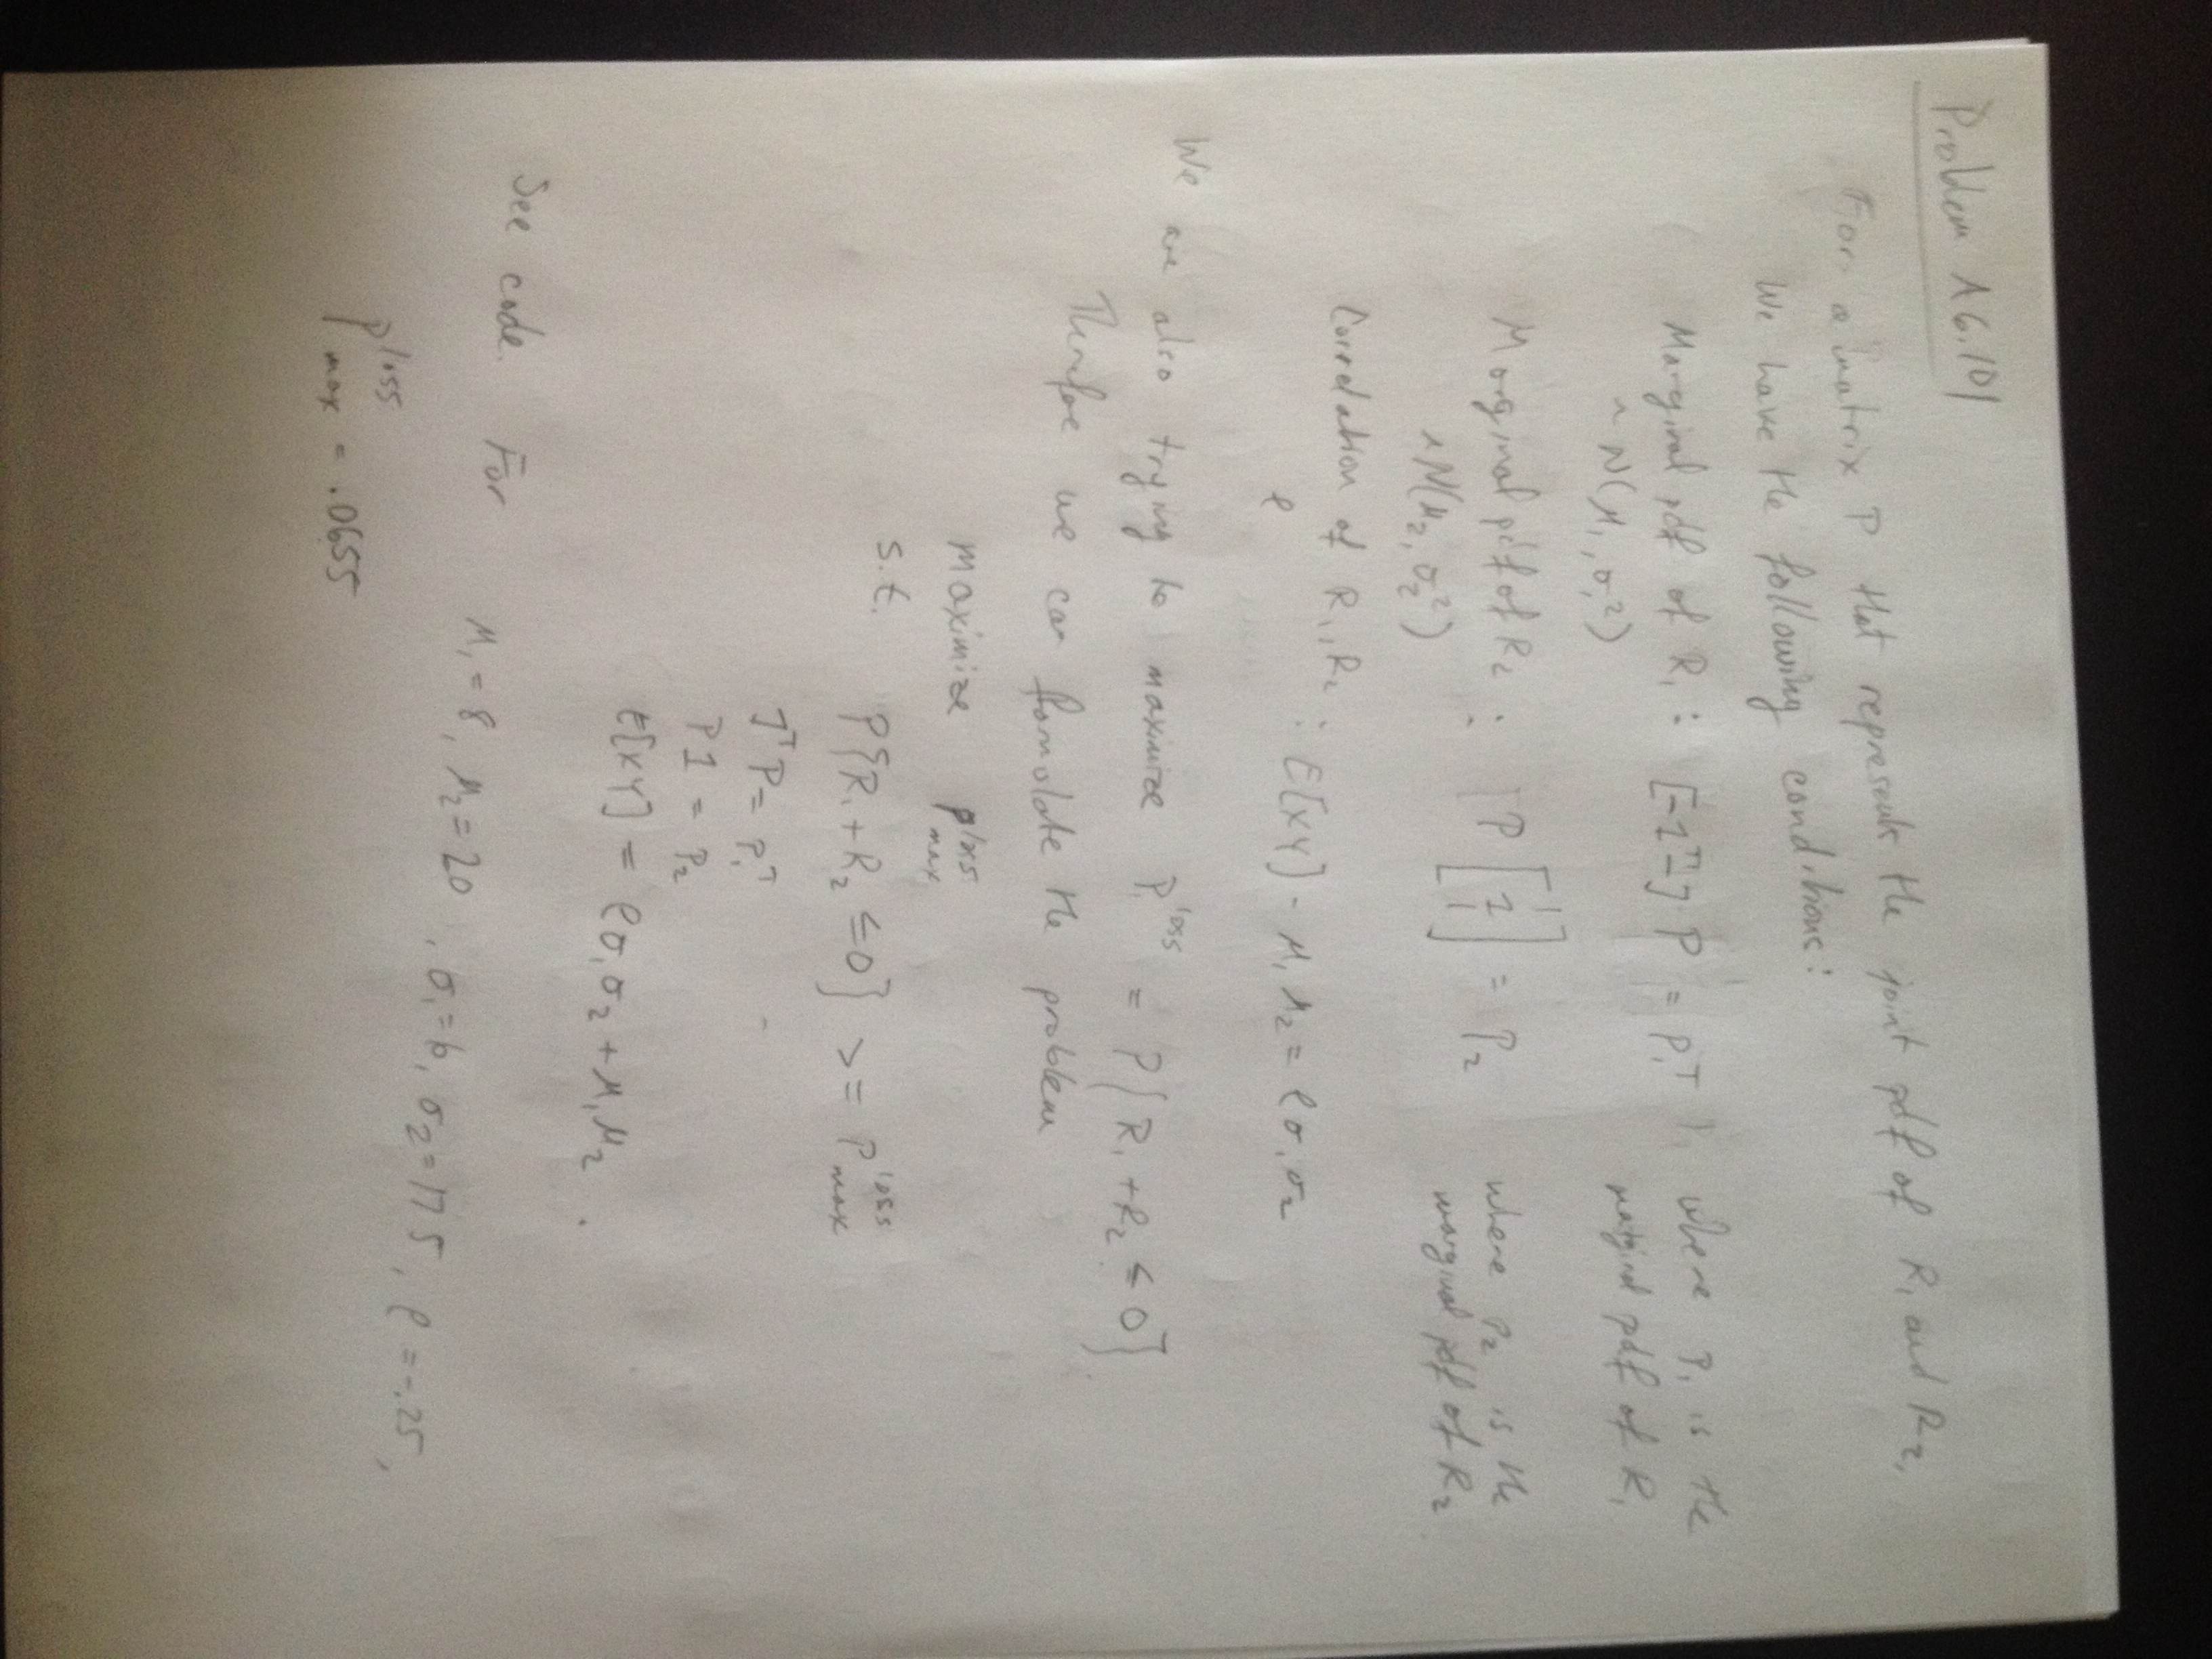 Problem A6.101
For a matrix P that represents the joint pdf of R₁ and R₂,
We have the following conditions:
Marginal pdf of R₁ : [-1ᵀ-] P = P₁ᵀ , where P₁ is the
~ N(μ₁, σ₁²) marginal pdf of R₁
Marginal pdf of R₂ : P [1] = P₂ where P₂ is the
~ N(μ₂, σ₂²) marginal pdf of R₂
Correlation of R₁, R₂ : E[XY] - μ₁ μ₂ = ρσ₁σ₂
ρ
We are also trying to maximize P^loss = P{R₁ + R₂ ≤ 0}
Therefore we can formulate the problem
maximize P^loss_max
s.t. P{R₁ + R₂ ≤ 0} >= P^loss_max
1ᵀP = P₁ᵀ
P1 = P₂
E[XY] = ρσ₁σ₂ + μ₁μ₂ .
See code. For μ₁ = 8, μ₂ = 20 , σ₁ = 6, σ₂ = 17.5, ρ = -.25,
P^loss_max = .0655